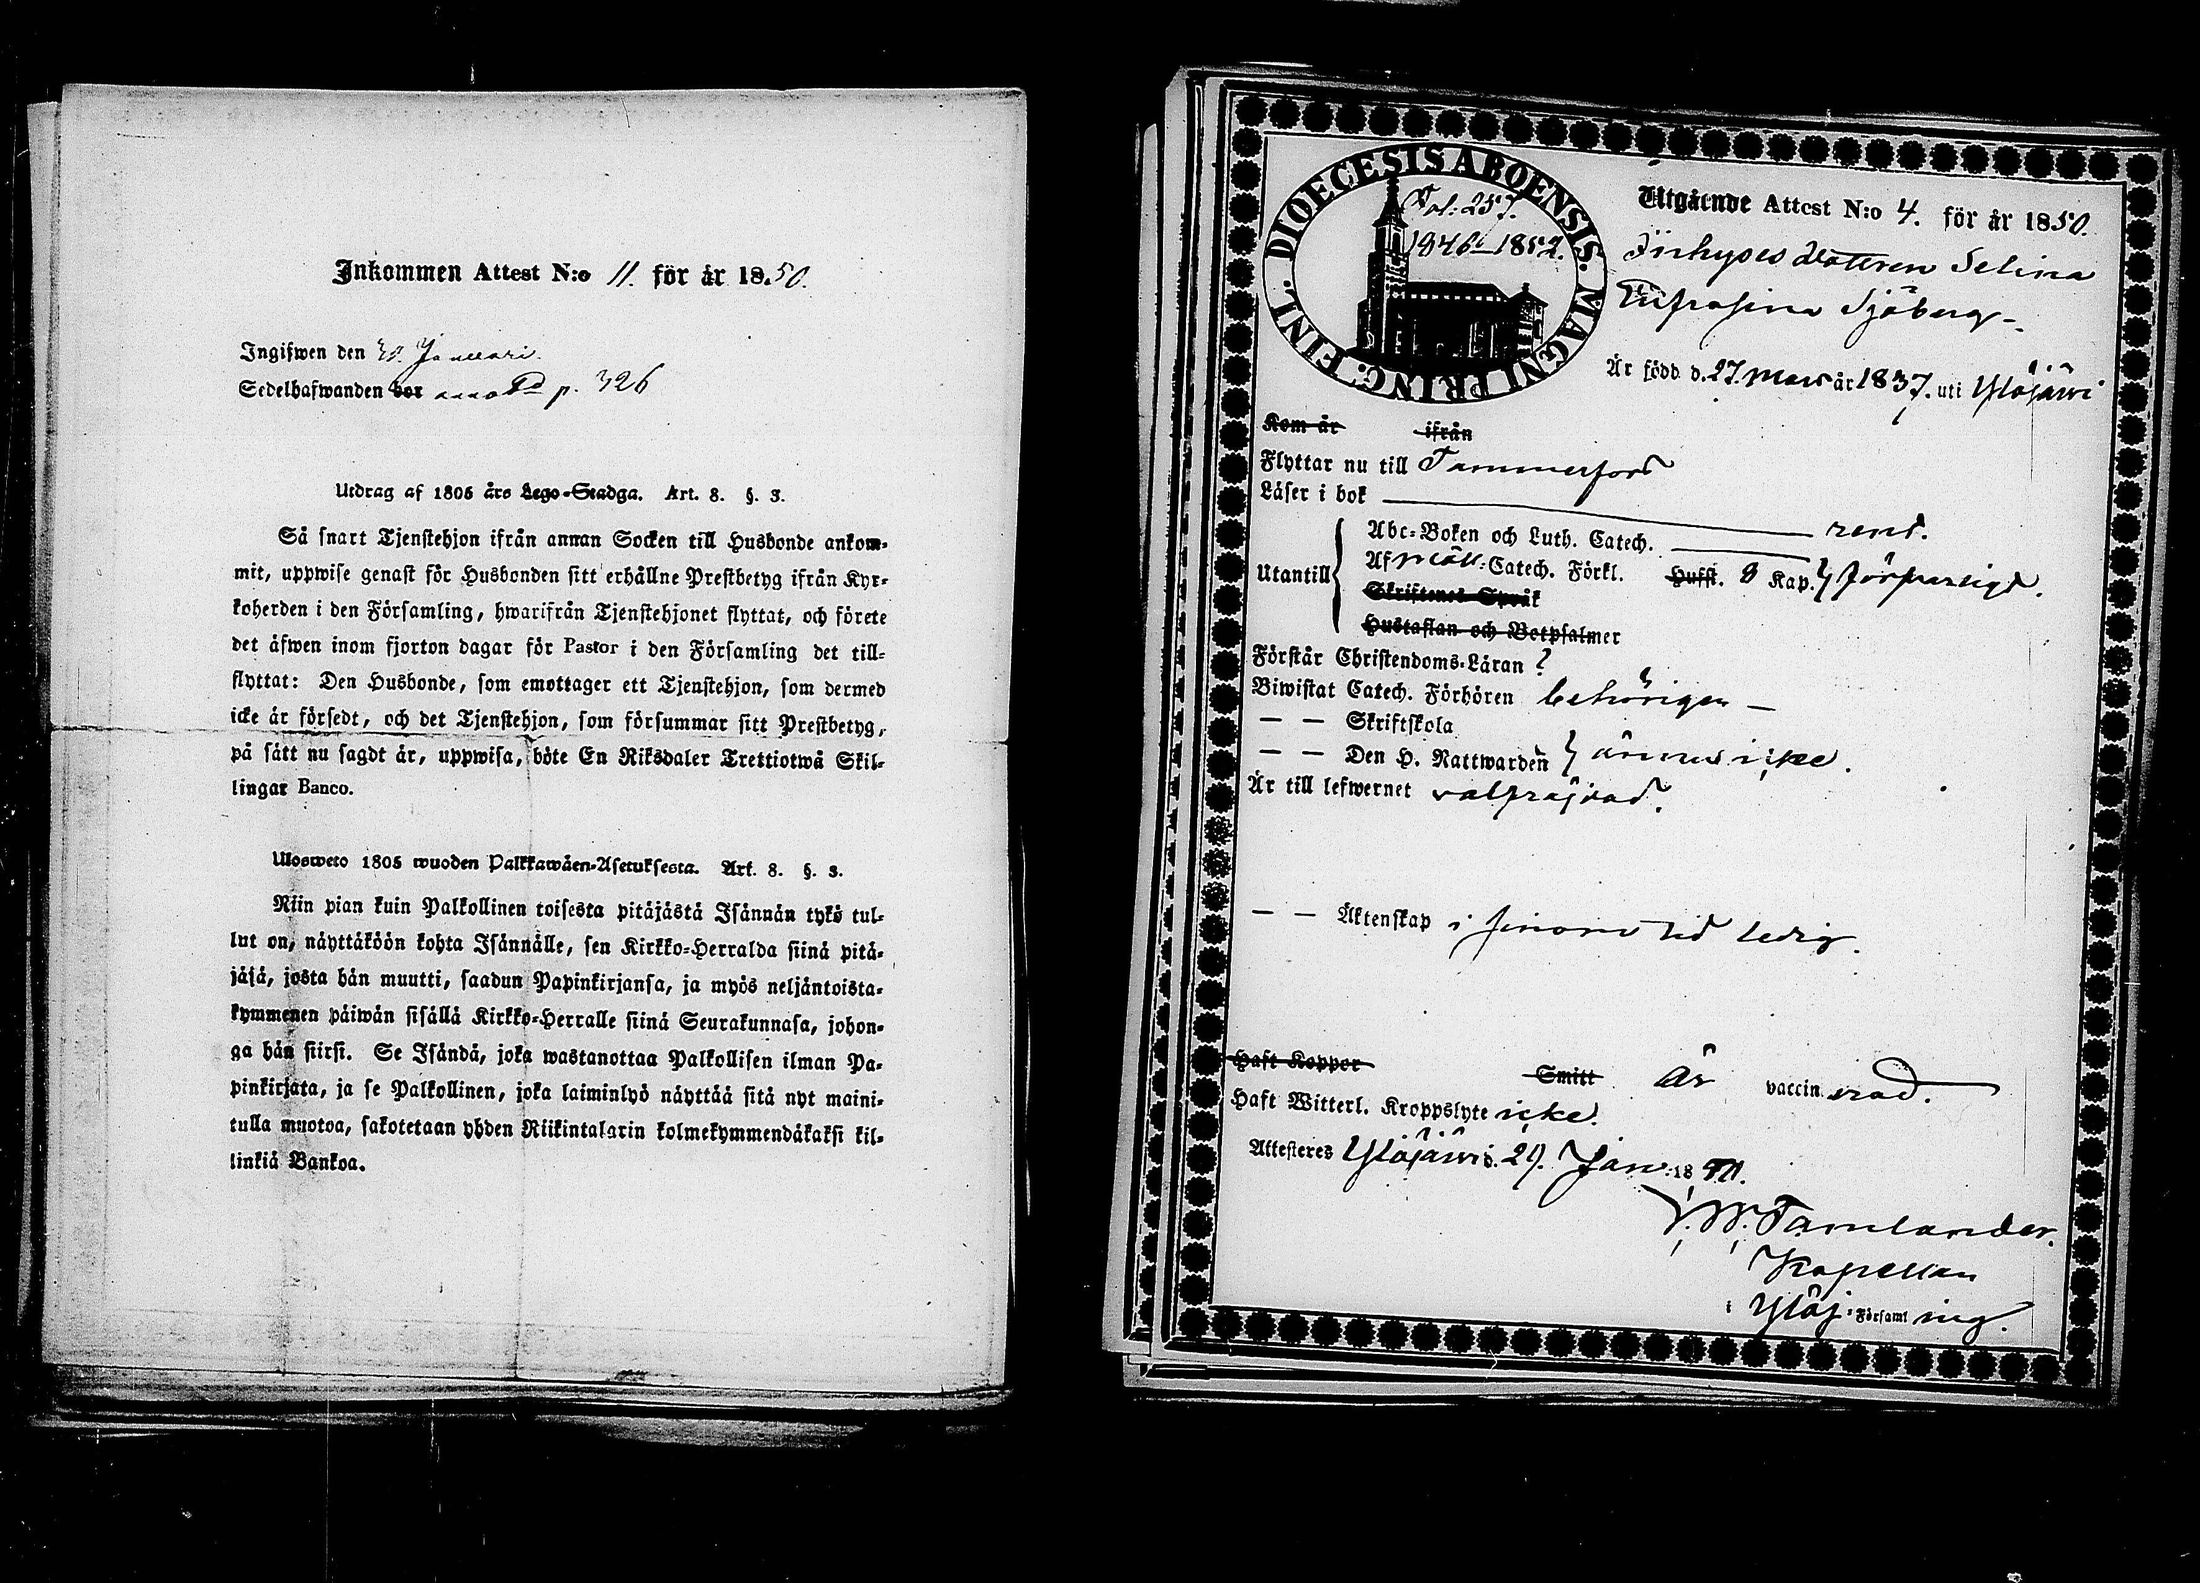 Inkommen Attest N:o 11. för år 1850.
Ingifwen den 30. Januari.
Sedelhafwanden bor p. 326
Utdrag af 1805 års Lego-Stadga. Art. 8. §. 3.
Så snart Tjenstehjon ifrån annan Socken till Husbonde ankom-
mit, uppwise genast för Husbonden sitt erhållne Prestbetyg ifrån Kyr-
koherden i den Församling, hwarifrån Tjenstehjonet flyttat, och förete
det äfwen inom fjorton dagar för Pastor i den Församling det till-
flyttat: Den Husbonde, som emottager ett Tjenstehjon, som dermed
icke är försedt, och det Tjenstehjon, som försummar sitt Prestbetyg,
på sätt nu sagdt är, uppwisa, böte En Riksdaler Trettiotwå Skil-
lingar Banco.
Ulosweto 1805 wuoden Palkkawäen-Asetuksesta. Art. 8. §. 3.
Niin pian kuin Palkollinen toisesta pitäjästä Isännän tykö tul-
lut on, näyttäköön kohta Isännälle, sen Kirkko-Herralda siinä pitä-
jäsä, josta hän muutti, saadun Papinkirjansa, ja myös neljäntoista-
kymmenen päiwän sisällä Kirkko-Herralle siinä Seurakunnasa, johon-
ga hän siirsi. Se Isändä, joka wastanottaa Palkollisen ilman Pa-
pinkirjata, ja se Palkollinen, joka laiminlyö näyttää sitä nyt maini-
tulla muotoa, sakotetaan yhden Riikintalarin kolmekymmendäkaksi kil-
linkiä Bankoa.
DIOECESIS ABOENSIS. MAGNI PRINC. FINL.
Fol: 257.
1846–1852.
Utgående Attest N:o 4. för år 1850.
Inhyses dotteren Selina
Eufrosina Sjöberg
Är född d. 27. Mars år 1837. uti Ylöjärvi
Kom år ifrån
Flyttar nu till Tammerfors
Läser i bok rent.
Utantill
Abc-Boken och Luth. Catech.
Af Möll: Catech. Förkl. Hufst. 8 Kap. försvarligt.
Skriftenes Språk
Hustaflan och Botpsalmer
Förstår Christendoms-Läran?
Biwistat Catech. Förhören behörigen
— — Skriftskola
— — Den H. Nattwarden ännu icke.
Är till lefwernet välfräjdad.
— — Äktenskap i sinom tid ledig.
Haft Koppor Smitt är vaccinerad.
Haft Witterl. Kroppslyte icke.
Attesteres Ylöjärvi d. 29. Jan: 1850.
W. Tamlander.
Kapellan
i Ylöj. Församling.